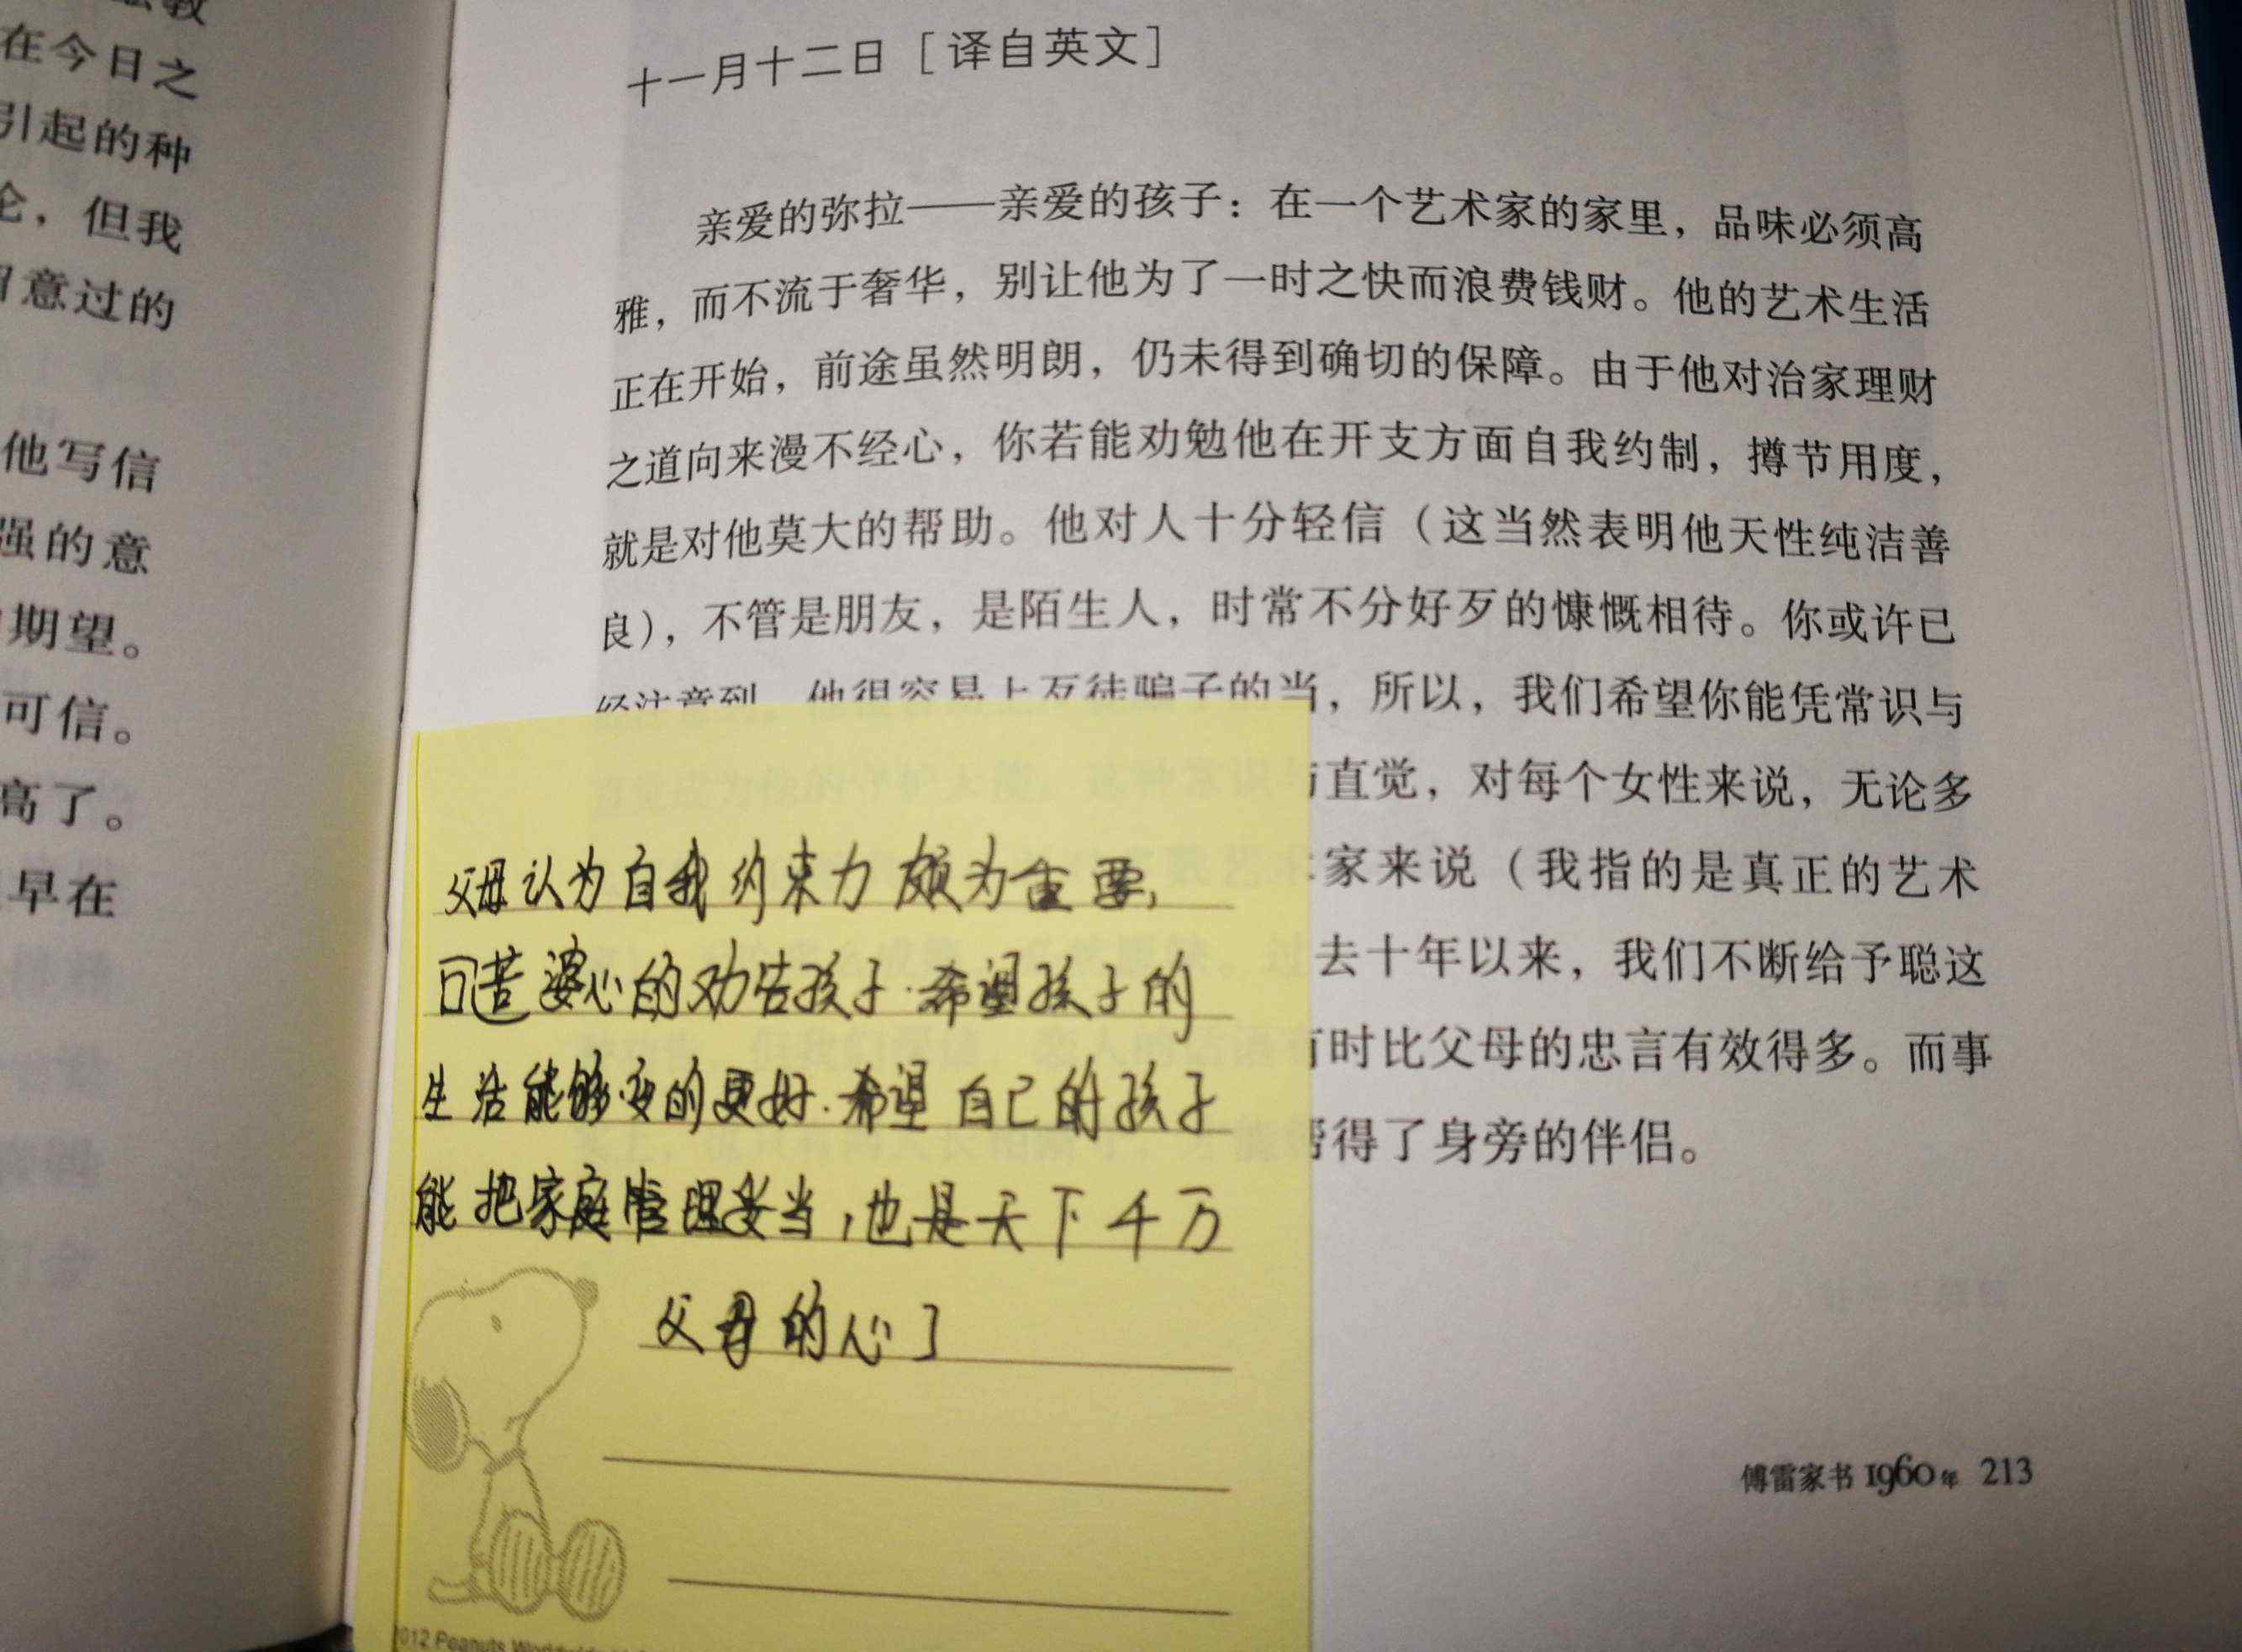 教
在今日之
引起的种
论，但我
留意过的
他写信
强的意
期望。
可信。
高了。
早在
十一月十二日［译自英文］
亲爱的弥拉——亲爱的孩子：在一个艺术家的家里，品味必须高
雅，而不流于奢华，别让他为了一时之快而浪费钱财。他的艺术生活
正在开始，前途虽然明朗，仍未得到确切的保障。由于他对治家理财
之道向来漫不经心，你若能劝勉他在开支方面自我约制，撙节用度，
就是对他莫大的帮助。他对人十分轻信（这当然表明他天性纯洁善
良），不管是朋友，是陌生人，时常不分好歹的慷慨相待。你或许已
经注意到，他很容易上歹徒骗子的当，所以，我们希望你能凭常识与
与直觉，对每个女性来说，无论多
家来说（我指的是真正的艺术
去十年以来，我们不断给予聪这
有时比父母的忠言有效得多。而事
帮得了身旁的伴侣。
父母认为自我约束力颇为重要，
口苦婆心的劝告孩子.希望孩子的
生活能够变的更好.希望自己的孩子
能把家庭管理妥当，也是天下千万
父母的心］
2012 Peanuts Worldwide
傅雷家书 1960年 213